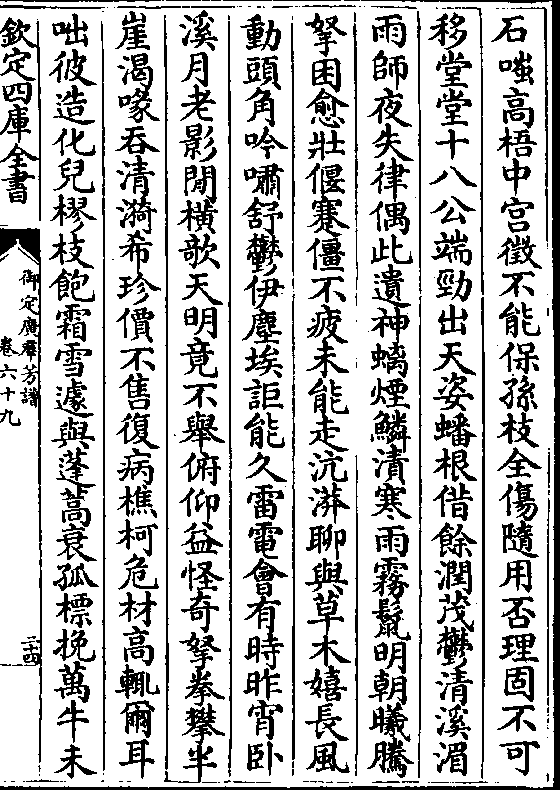 石嗤高梧中宮徵不能保孫枝全傷隨用否理固不可
移堂堂十八公端勁出天姿蟠根偕餘潤茂鬱清溪湄
雨師夜失律偶此遺神螭煙鱗漬寒雨霧鬛明朝曦騰
拏困愈壯偃蹇僵不疲未能走沆漭聊與草木嬉長風
動頭角吟嘯舒鬱伊塵埃詎能久雷電會有時昨宵卧
溪月老影閒橫歌天明竟不舉俯仰益怪奇拏拳攀半
崖渴喙吞清漪希珍價不售復病樵柯危材高輒爾耳
咄彼造化兒樛枝飽霜雪遽與蓬蒿衰孤標挽萬牛未
欽定四庫全書
御定廣羣芳譜
卷六十九
三十四